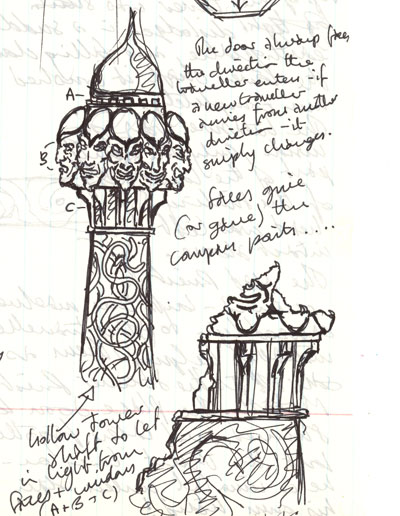 The door always faces
the direction the
traveller enters - if
a new traveller
arrives from another
direction - it
simply changes.
A -
B
C -
Faces give
(or gave) the
compass points....
Hollow tower
shaft to let
in light from
faces + windows
(A + B + C)